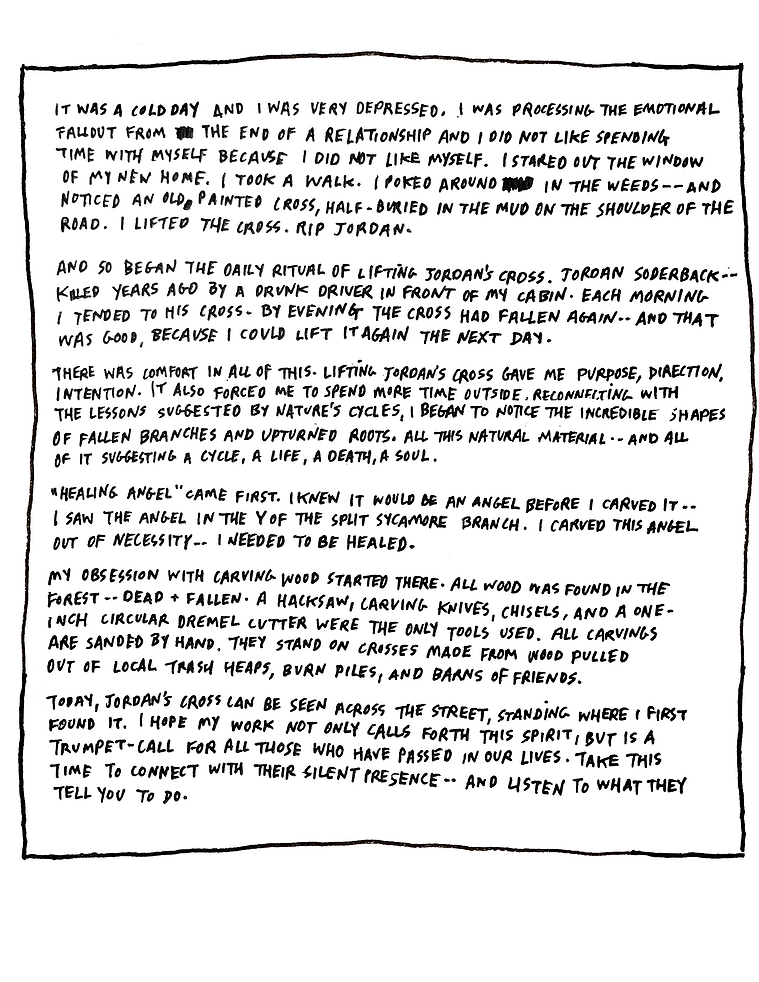 IT WAS A COLD DAY AND I WAS VERY DEPRESSED. I WAS PROCESSING THE EMOTIONAL
FALLOUT FROM THE END OF A RELATIONSHIP AND I DID NOT LIKE SPENDING
TIME WITH MYSELF BECAUSE I DID NOT LIKE MYSELF. I STARED OUT THE WINDOW
OF MY NEW HOME. I TOOK A WALK. I POKED AROUND IN THE WEEDS--AND
NOTICED AN OLD, PAINTED CROSS, HALF-BURIED IN THE MUD ON THE SHOULDER OF THE
ROAD. I LIFTED THE CROSS. RIP JORDAN.
AND SO BEGAN THE DAILY RITUAL OF LIFTING JORDAN'S CROSS. JORDAN SODERBACK--
KILLED YEARS AGO BY A DRUNK DRIVER IN FRONT OF MY CABIN. EACH MORNING
I TENDED TO HIS CROSS. BY EVENING THE CROSS HAD FALLEN AGAIN--AND THAT
WAS GOOD, BECAUSE I COULD LIFT IT AGAIN THE NEXT DAY.
THERE WAS COMFORT IN ALL OF THIS. LIFTING JORDAN'S CROSS GAVE ME PURPOSE, DIRECTION,
INTENTION. IT ALSO FORCED ME TO SPEND MORE TIME OUTSIDE. RECONNECTING WITH
THE LESSONS SUGGESTED BY NATURE'S CYCLES, I BEGAN TO NOTICE THE INCREDIBLE SHAPES
OF FALLEN BRANCHES AND UPTURNED ROOTS. ALL THIS NATURAL MATERIAL--AND ALL
OF IT SUGGESTING A CYCLE, A LIFE, A DEATH, A SOUL.
"HEALING ANGEL" CAME FIRST. I KNEW IT WOULD BE AN ANGEL BEFORE I CARVED IT--
I SAW THE ANGEL IN THE Y OF THE SPLIT SYCAMORE BRANCH. I CARVED THIS ANGEL
OUT OF NECESSITY-- I NEEDED TO BE HEALED.
MY OBSESSION WITH CARVING WOOD STARTED THERE. ALL WOOD WAS FOUND IN THE
FOREST--DEAD + FALLEN. A HACKSAW, CARVING KNIVES, CHISELS, AND A ONE-
INCH CIRCULAR DREMEL CUTTER WERE THE ONLY TOOLS USED. ALL CARVINGS
ARE SANDED BY HAND. THEY STAND ON CROSSES MADE FROM WOOD PULLED
OUT OF LOCAL TRASH HEAPS, BURN PILES, AND BARNS OF FRIENDS.
TODAY, JORDAN'S CROSS CAN BE SEEN ACROSS THE STREET, STANDING WHERE I FIRST
FOUND IT. I HOPE MY WORK NOT ONLY CALLS FORTH THIS SPIRIT, BUT IS A
TRUMPET-CALL FOR ALL THOSE WHO HAVE PASSED IN OUR LIVES. TAKE THIS
TIME TO CONNECT WITH THEIR SILENT PRESENCE-- AND LISTEN TO WHAT THEY
TELL YOU TO DO.